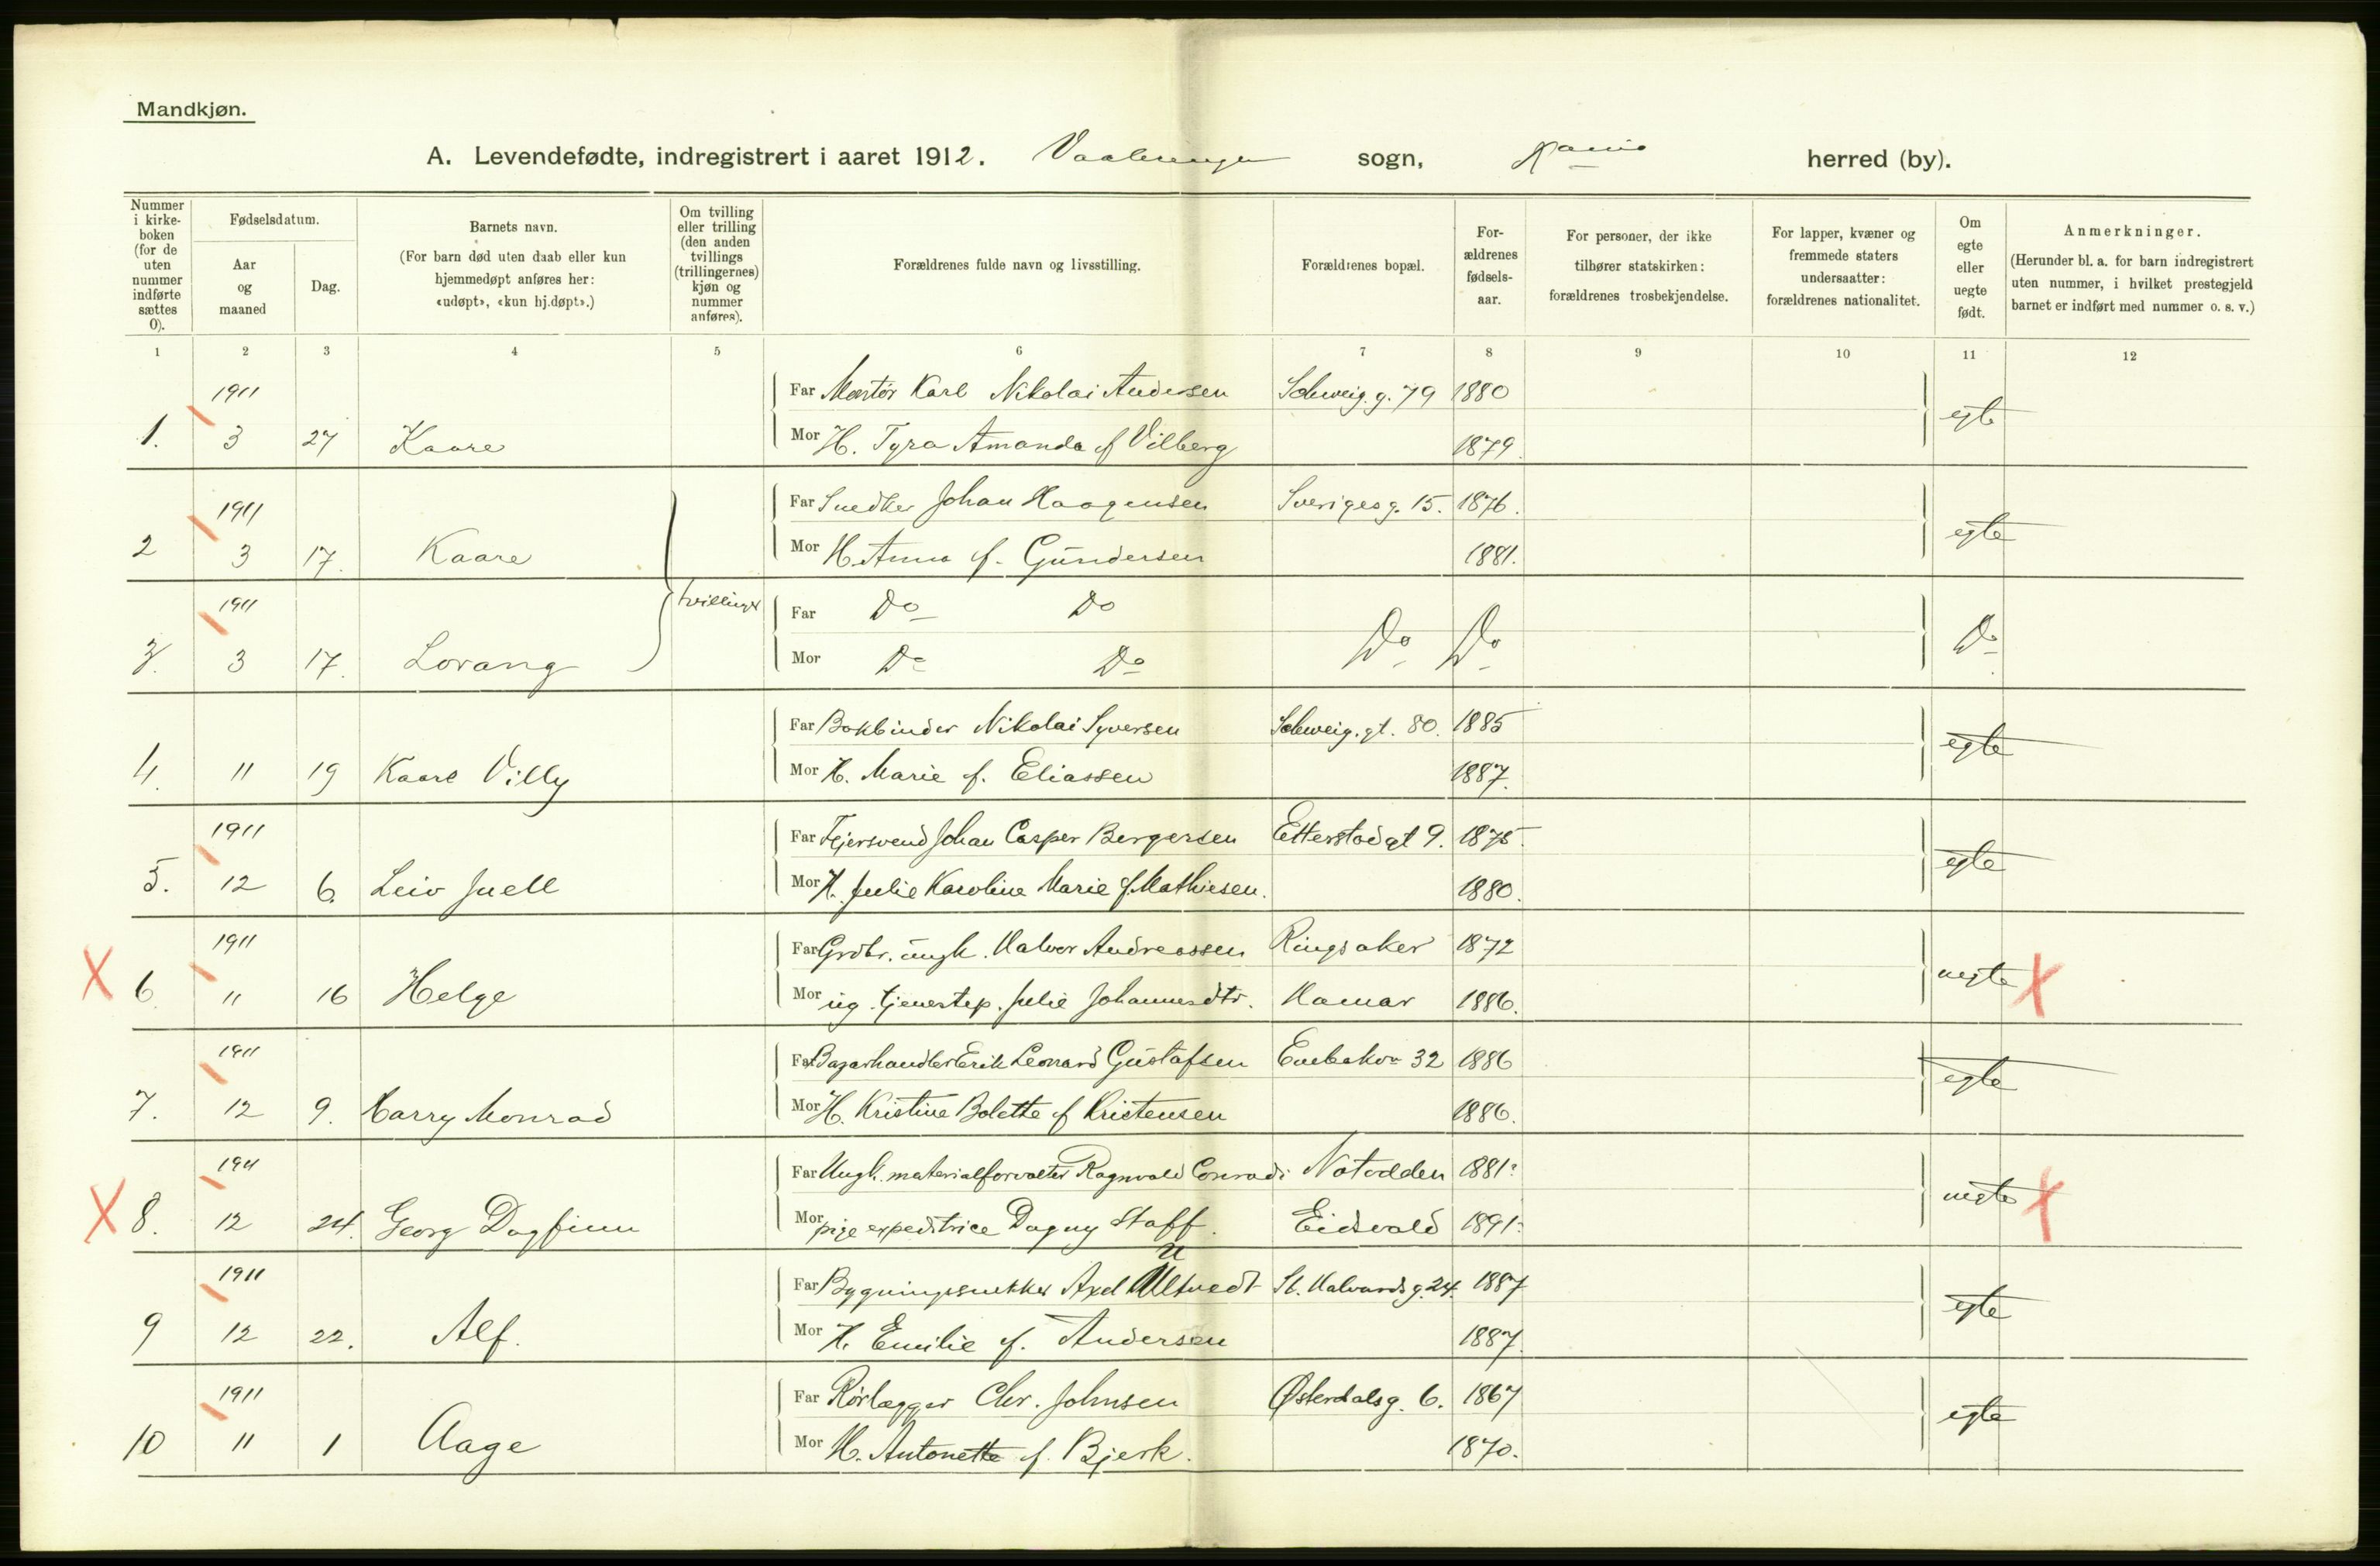 Mandkjøn.
A. Levendefødte, indregistrert i aaret 1912. Vaalerengen sogn, Kania herred (by).
Nummer i kirke-boken (for de uten nummer indførte sættes 0).
Fødselsdatum.
Aar og maaned
Dag.
Barnets navn.
(For barn død uten daab eller kun hjemmedøpt anføres her: «udøpt», «kun hj.døpt».)
Om tvilling eller trilling (den anden tvillings (trillingernes) kjøn og nummer anføres).
Forældrenes fulde navn og livsstilling.
Forældrenes bopæl.
For-ældrenes fødsels-aar.
For personer, der ikke tilhører statskirken: forældrenes trosbekjendelse.
For lapper, kvæner og fremmede staters undersaatter: forældrenes nationalitet.
Om egte eller uegte født.
Anmerkninger.
(Herunder bl. a. for barn indregistrert uten nummer, i hvilket prestegjeld barnet er indført med nummer o. s. v.)
1 2 3 4 5 6 7 8 9 10 11 12
1911 Far Montør Karl Nikolai Andersen Schweig. g. 79 1880
1. 3 27 Kaare Mor H. Tyra Amanda f Vilberg 1879. egte
1911 Far Snedker Johan Haagensen Sverigesg. 15. 1876.
2 3 17. Kaare Mor H. Anna f. Gundersen 1881. egte
1911 tvillinger Far Do Do
3. 3 17. Lorang Mor Do Do Do Do Do
Far Bokbinder Nikolai Syversen Schweig. gt. 80. 1885
4. 11 19 Kaare Villy Mor H. Marie f. Eliassen 1887. egte
1911 Far Fejersvend Johan Casper Bergersen Etterstadgt 9. 1875.
5. 12 6. Leiv Juell Mor H. Julie Karoline Marie f. Mathiesen. 1880. egte
1911 Far Grdbr. ungk. Halvor Andreassen Ringsaker 1872
X 6. 11 16 Helge Mor ug. tjenestep. Julie Johannesdtr. Hamar 1886. uegte X
1911 Far Bazarhandler Erik Leonard Gustafsen Enebakv 32 1886
7. 12 9. Harry Monrad Mor H. Kristine Bolette f Kristensen 1886. egte
1911 Far Ungk. materialforvalter Ragnvald Conradi Notodden 1881.
X 8. 12 24. Georg Dagfinn Mor pige expeditrice Dagny Staff. Eidsvold 1891. uegte X
1911 Far Bygningssnekker Axel Ultvedt St. Halvards g. 24. 1887
9 12 22. Alf. Mor H. Emilie f. Andersen 1887. egte
1911 Far Rørlægger Chr. Johnsen Østerdalsg. 6. 1867
10 11 1 Aage Mor H. Antonette f. Bjerk. 1870. egte